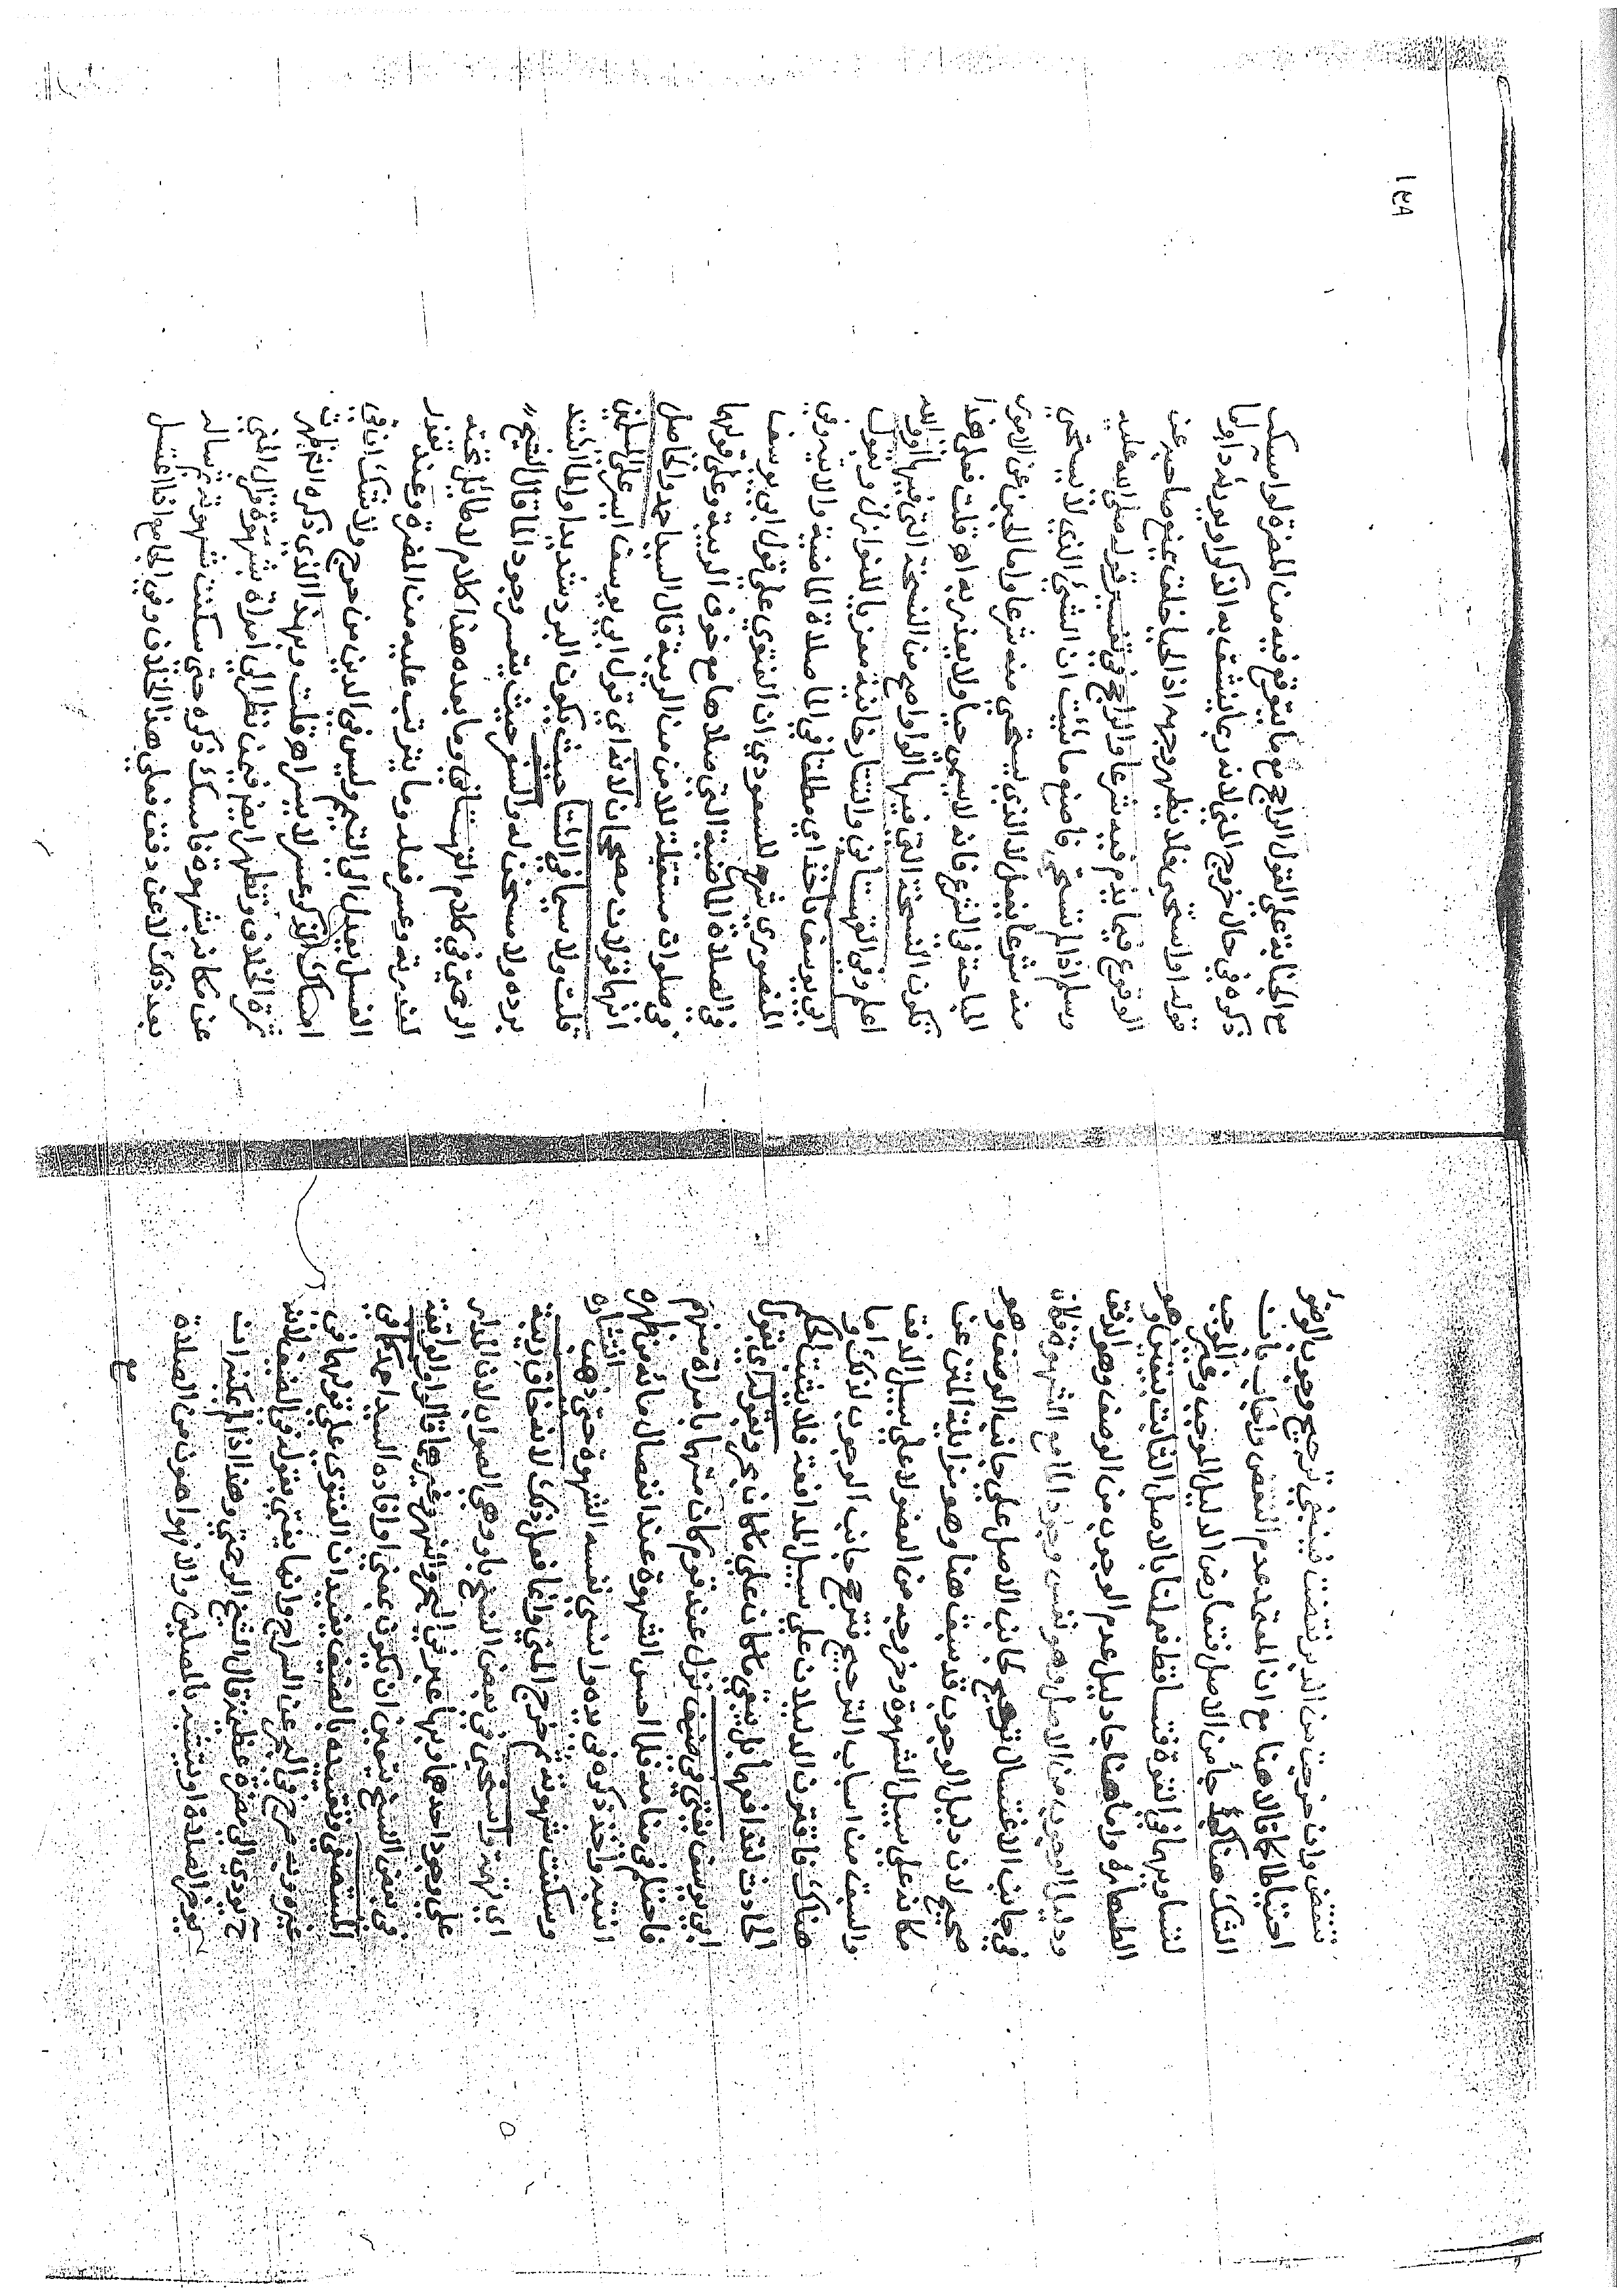 تنتقض وان خرجت من الدبر نقضت فينبغي ترجيح وجوب الوضوء
احتياطا كما قالا هنا مع ان المعتمد عدم النقض واجاب بان
الشك هناك جاء من الاصل فتعارض الدليل الموجب وغير الموجب
لتساويهما في القوة فتساقطا فعملنا بالاصل الثابت بيقين وهو
الطهارة واما هنا جاء دليل عدم الوجوب من الوصف وهو الدفق
ودليل الوجوب من الاصل وهو نفس وجود الماء مع الشهوة فكان
في جانب الاغتسال ترجيح لجانب الاصل على جانب الوصف وهو
صحيح لان دليل الوجوب قد سبق هنا وهو مزايلة المني عن
مكانه على سبيل الشهوة وخروجه من العضو لا على سبيل الدفق
والسبق من اسباب الترجيح فترجح جانب الوجوب لذلك واما
هناك فاقترن الدليلان على سبيل المدافعة فلا يثبت الحكم
الحادث لتدافعهما بل يبقى ما كان على ما كان بحر وبقول اي بقول
ابي يوسف يفتى في ضيف نزل عند قوم كان متهما بامراة منهم
فاحتلم في منامه فلما احس الشهوة عند انفصال مائه من ظهره
انتبه واخذ ذكره في يده وانسى نفسه الشهوة حتى ذهب انتشاره
وسكنت شهوته ثم خرج المني وانما فعل ذلك لانه خاف ريبة
اي تهمة واستحيى في بعض النسخ باو وهي الصواب لان المدار
على وجود احدهما وبها عبر في البحر والنهر وغيرهما قالوا والواقعة
في بعض النسخ يتعين ان تكون بمعنى او افاده السيد احمد كما في
المستصفى وتقييده بالضيف يفيد ان الفتوى على قولهما في
غيره وبه صرح في البحر عن السراج وانما يفتى بقوله في الضيف لانه
ح يودي الى مضرة عظيمة قال الشيخ الرحمتي وهذا اذا لم يمكنه ان
يومن الصلاة او يتشبه بالمصلين والا فهو اهون من الصلاة
مع
١٤٨
مع الجنابة على القول الراجح مع ما يتوقع فيه من المضرة لو امسك
ذكره في حال خروج المني لانه ربما ينشق به الذكر او يورث داء واما
قوله او استحى فلا يظهر وجهه اذ الحيا خلق يمنع صاحبه عن
الوقوع فيما يذم فيه شرعا والراجح في تفسير قوله صلى الله عليه
وسلم اذا لم تستحي فاصنع ما شئت ان الشيء الذي لا يستحى
منه شرعا يفعل لا الذي يستحى منه شرعا واما الجبن عن الامور
المباحة في الشرع فانه لا يسمى حيا ولا يعذر به اه قلت فعلى هذا
تكون النسخة التي فيها الواو اصح من النسخة التي فيها او والله
اعلم وفي القهستاني والتتارخانية معزيا للنوازل وبقول
ابي يوسف ناخذ اي مطلقا في الماصلاة الماضية والاتية وفي
المنصوري شرح المسعودي ان الفتوى على قول ابي يوسف
في الصلاة الماضية التي صلاها مع خوف الريبة وعلى قولهما
في صلوات مستقبلة للامن من الريبة قال السيد احمد والحاصل
انهما قولان مصححان لانه اي قول ابي يوسف ايسر على المسلمين
قلت ولا سيما في الشتا حيث يكون البرد شديدا والماء اشتد
برده ولا مسخن له والسفر حيث يتعسر وجود الماء قال الشيخ
الرحمتي في كلام القهستاني وما بعده هذا كلام لا طائل تحته
لندرته وعسر فعله وما يترتب عليه من المضرة وعند تعذر
الغسل يعدل الى التيمم وليس في الدين من حرج ولا شك ان في
امساك الذكر عسر لا يسر اه قلت وبهذا الذي ذكره تظهر
ثمرة الخلاف وتظهر ايضا فيمن نظر الى امراة بشهوة فزال المني
عن مكانه بشهوة فامسك ذكره حتى سكنت شهوته ثم سال
بعد ذلك لا عن دفق فعلى هذا الخلاف وفي المجامع اذا اغتسل